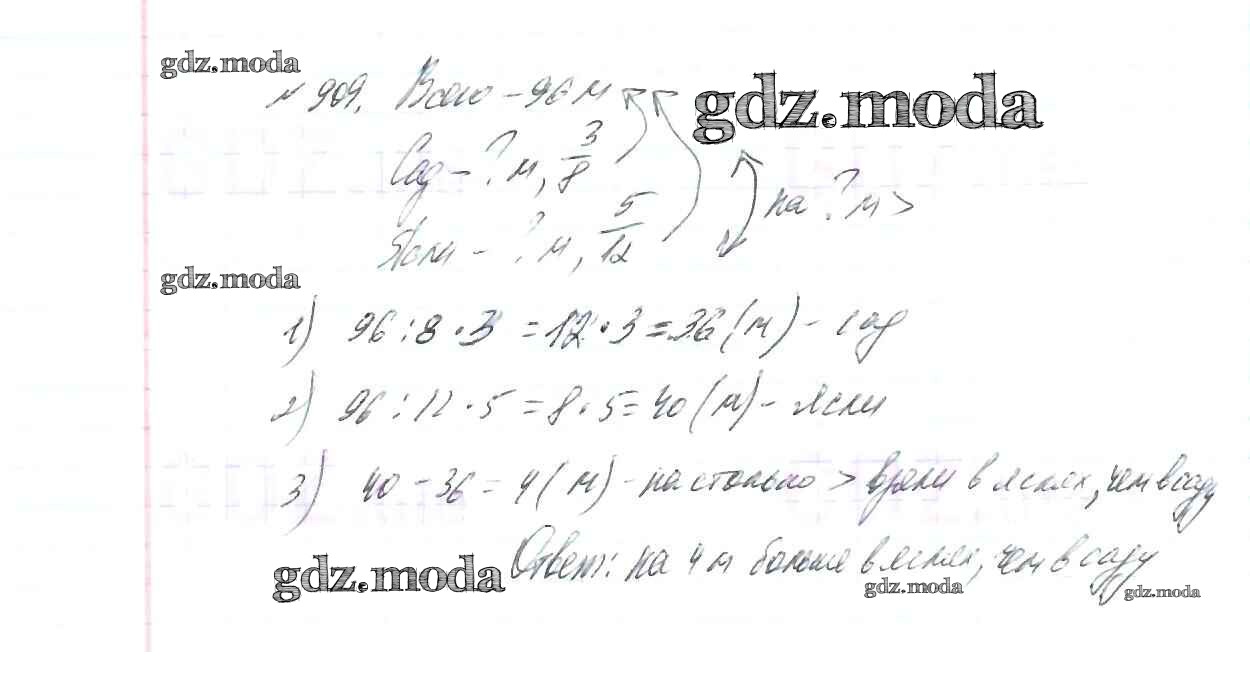 gdz.moda
№ 909. Всего - 96 м
gdz.moda
Сад - ? м, 3/8
на ? м >
Ясли - ? м, 5/12
gdz.moda
1) 96 : 8 · 3 = 12 · 3 = 36 (м) - сад
2) 96 : 12 · 5 = 8 · 5 = 40 (м) - ясли
3) 40 - 36 = 4 (м) - настолько > взяли в яслях, чем в саду
Ответ: на 4 м больше в яслях, чем в саду
gdz.moda
gdz.moda
gdz.moda